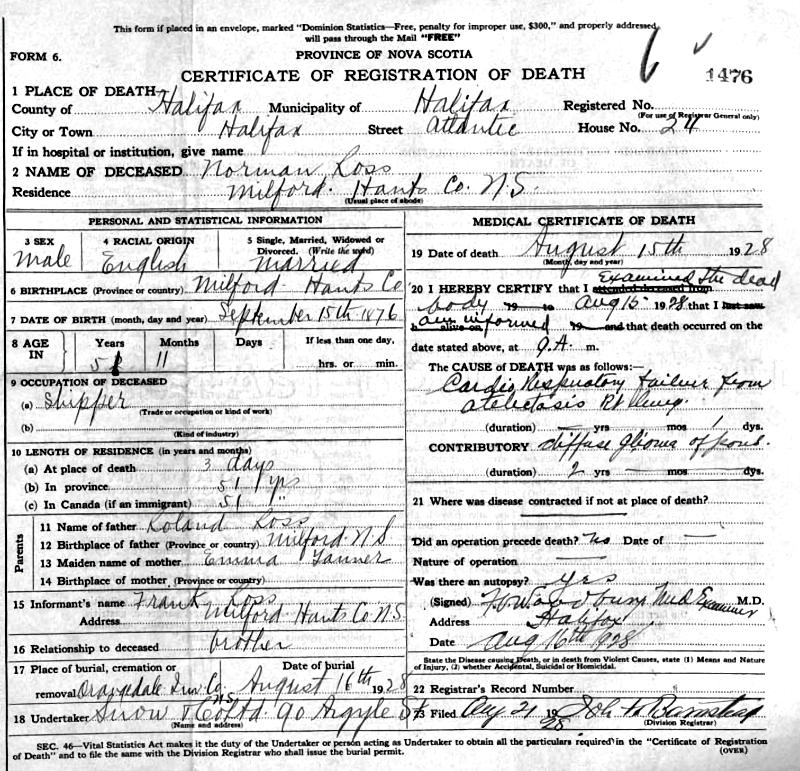 This form if placed in an envelope, marked "Dominion Statistics—Free, penalty for improper use, $300," and properly addressed,
will pass through the Mail "FREE"
FORM 6.
PROVINCE OF NOVA SCOTIA
CERTIFICATE OF REGISTRATION OF DEATH
1476
1 PLACE OF DEATH
County of Halifax Municipality of Halifax Registered No.
(For use of Registrar General only)
City or Town Halifax Street Atlantic House No. 24
If in hospital or institution, give name
2 NAME OF DECEASED Norman Ross
Residence Milford. Hants Co. N.S.
(Usual place of abode)
PERSONAL AND STATISTICAL INFORMATION
3 SEX 4 RACIAL ORIGIN 5 Single, Married, Widowed or Divorced. (Write the word)
Male English Married
6 BIRTHPLACE (Province or country) Milford Hants Co
7 DATE OF BIRTH (month, day and year) September 15th 1876
8 AGE IN Years Months Days If less than one day,
51 11 hrs. or min.
9 OCCUPATION OF DECEASED
(a) Shipper
(Trade or occupation or kind of work)
(b)
(Kind of industry)
10 LENGTH OF RESIDENCE (in years and months)
(a) At place of death 3 days
(b) In province 51 yrs
(c) In Canada (if an immigrant) 51 "
Parents
11 Name of father Roland Ross
12 Birthplace of father (Province or country) Milford N.S
13 Maiden name of mother Emma Tanner
14 Birthplace of mother (Province or country)
15 Informant's name Frank Ross
Address Milford Hants Co N.S
16 Relationship to deceased brother
17 Place of burial, cremation or removal Date of burial
Co. N.S August 16th 1928
18 Undertaker Snow & Co Ltd 90 Argyle St
(Name and address)
MEDICAL CERTIFICATE OF DEATH
19 Date of death August 15th 1928
(Month, day and year)
20 I HEREBY CERTIFY that I attended deceased from Examined the dead
body 19 to Aug 15 1928 that I last saw
h alive on am informed 19 and that death occurred on the
date stated above, at 9.A. m.
The CAUSE of DEATH was as follows:—
Cardio Respiratory failure from
atelectasis Rt lung.
(duration) — yrs — mos 1 dys.
CONTRIBUTORY diffuse glioma of pons.
(duration) 2 yrs — mos — dys.
21 Where was disease contracted if not at place of death?
Did an operation precede death? No Date of —
Nature of operation —
Was there an autopsy? Yes
(Signed) Med Examiner M.D.
Address Halifax
Date Aug 16th 1928
State the Disease causing Death, or in death from Violent Causes, state (1) Means and Nature
of Injury, (2) whether Accidental, Suicidal or Homicidal.
22 Registrar's Record Number
23 Filed Aug 21 1928
(Division Registrar)
SEC. 46—Vital Statistics Act makes it the duty of the Undertaker or person acting as Undertaker to obtain all the particulars required in the "Certificate of Registration
of Death" and to file the same with the Division Registrar who shall issue the burial permit. (OVER)